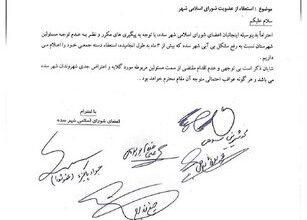 موضوع : استعفاء از عضویت شورای اسلامی شهر
سلام علیکم
احتراماً بدینوسیله اینجانبان اعضای شورای اسلامی شهر سده با توجه به پیگیری های مکرر و نظر به عدم توجه مسئولین
شهرستان نسبت به رفع مشکل بی آبی شهر سده که بیش از ۳ ماه به طول انجامیده، استعفاء دسته جمعی خود را اعلام می
داریم.
شایان ذکر است بی توجهی و عدم اقدام مقتضی از سمت مسئولین مربوطه مورد گلایه و اعتراض جدی شهروندان شهر سده
می باشد و هر گونه عواقب احتمالی متوجه آن مقام محترم خواهد بود.
با احترام
اعضای شورای اسلامی شهر سده